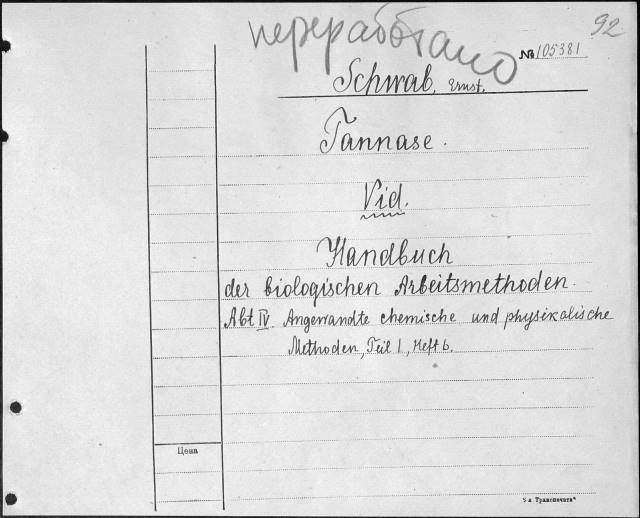 переработано
92
№ 105381
Schwab, Ernst.
Tannase.
Vid.
Handbuch
der biologischen Arbeitsmethoden.
Abt IV. Angewandte chemische und physikalische
Methoden, Teil 1, Heft 6.
Цена
5-я Транспечать"